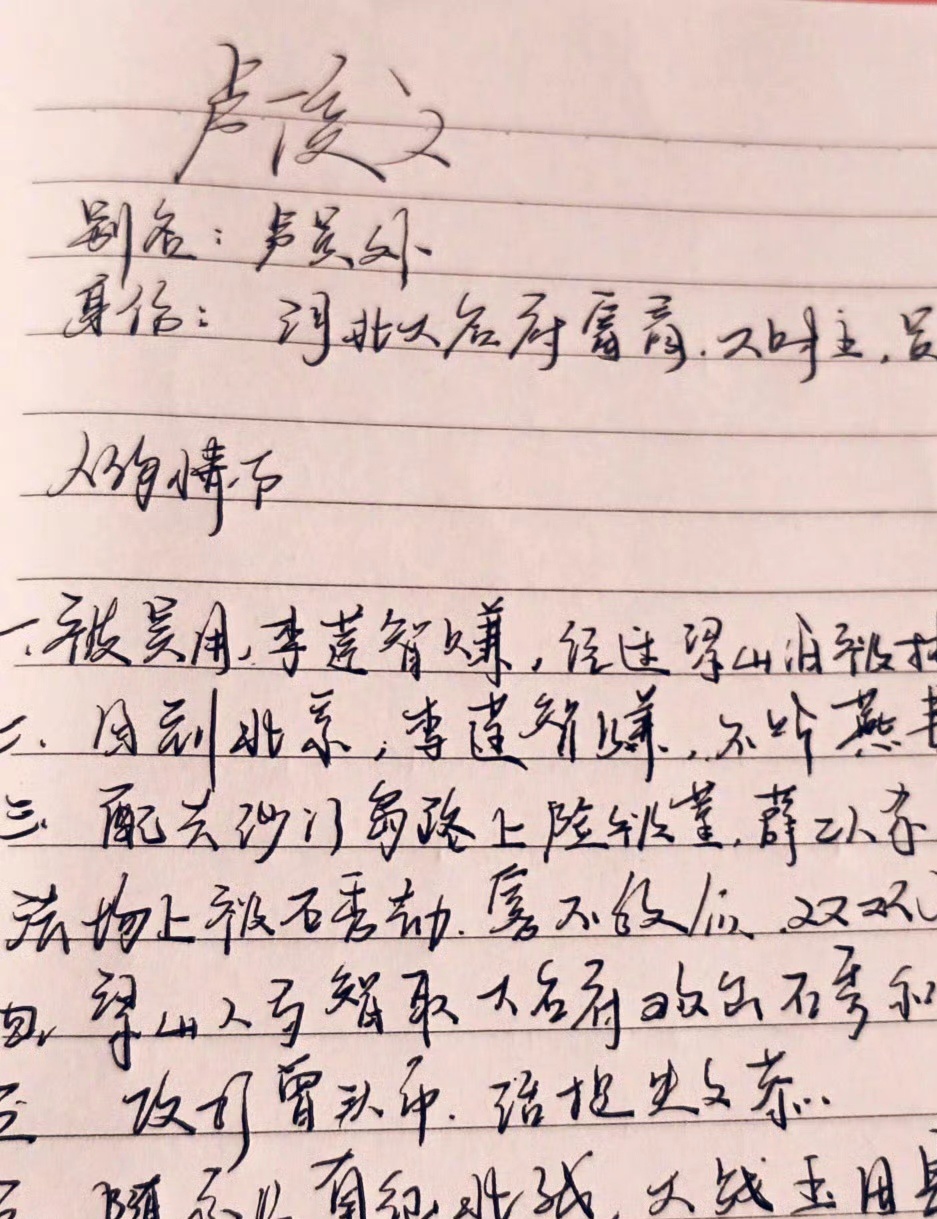 卢俊义
别名：卢员外
身份：河北大名府富商.大财主,员
人物情节
一.被吴用,李逵智赚,经过梁山泊被
二.回到北京,李逵智赚,不听燕
三.配去沙门岛路上险被董,薛二人
法场上被石秀劫.寡不敌众.双双
四.梁山人马智取大名府救出石秀和
五 攻打曾头市.活捉史文恭.